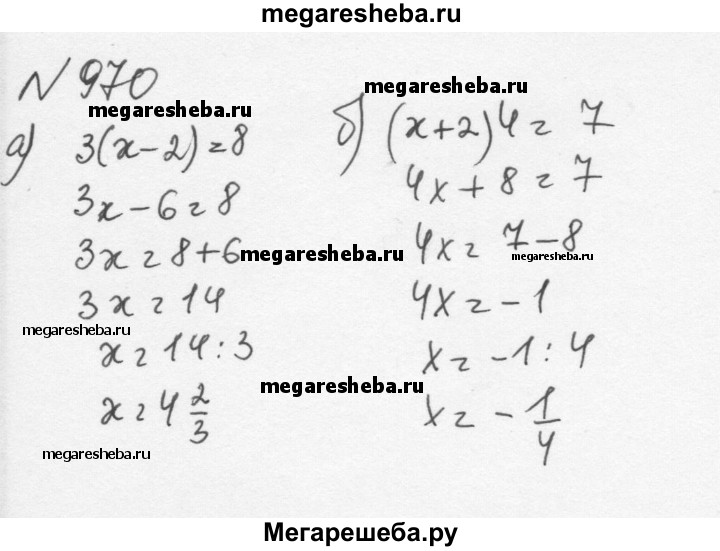 megaresheba.ru
№ 970
megaresheba.ru
megaresheba.ru
а) 3(x-2)=8
3x-6=8
3x=8+6
megaresheba.ru
3x=14
megaresheba.ru
x=14:3
x=4 2/3
megaresheba.ru
megaresheba.ru
б) (x+2)4=7
4x+8=7
4x=7-8
megaresheba.ru
4x=-1
x=-1:4
x=-1/4
Мегарешеба.ру